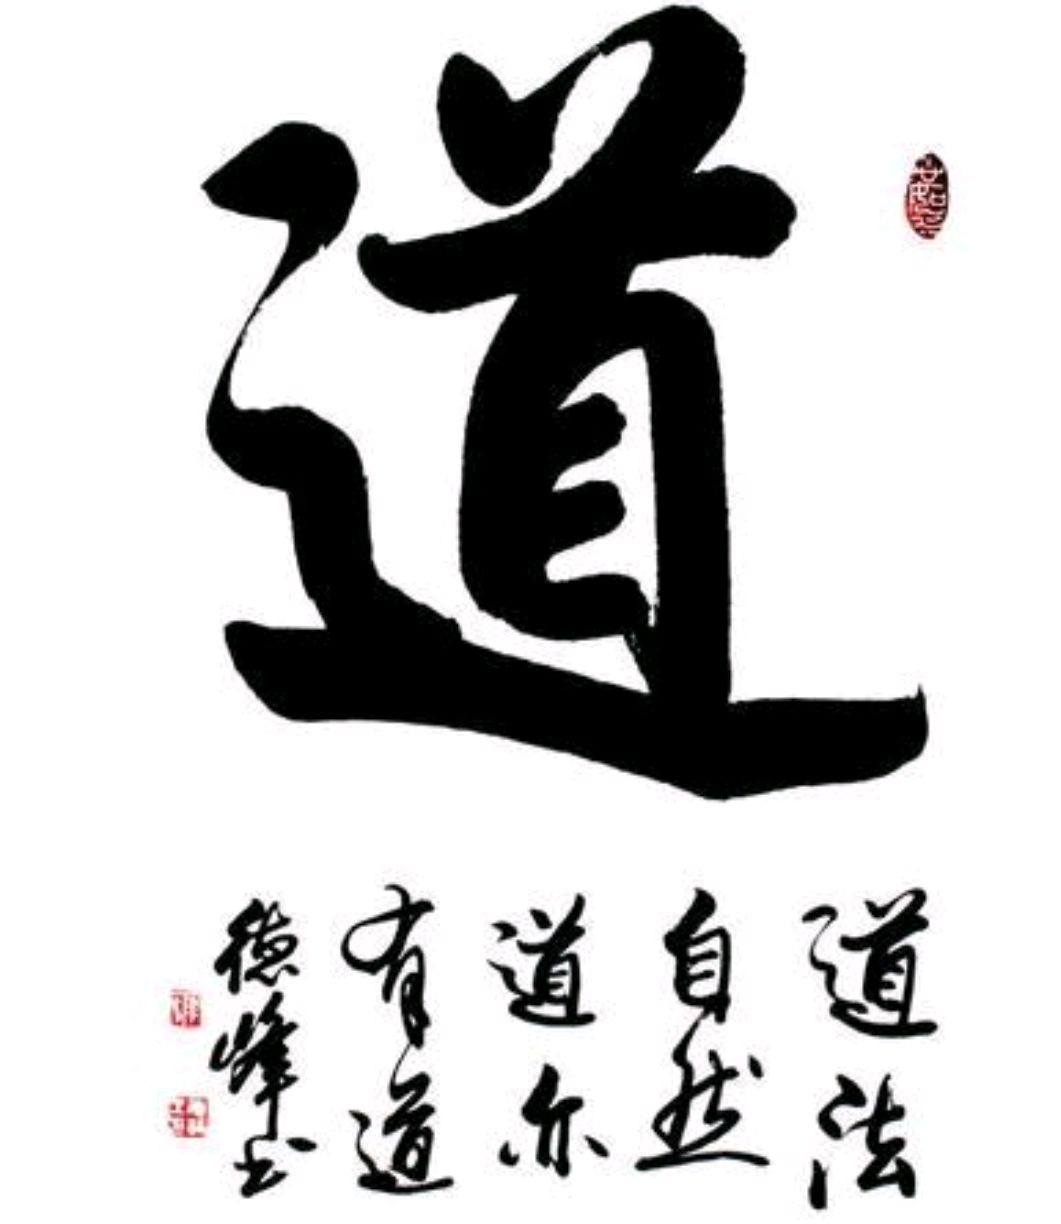 道
道法
自然
道亦
有道
德峰书